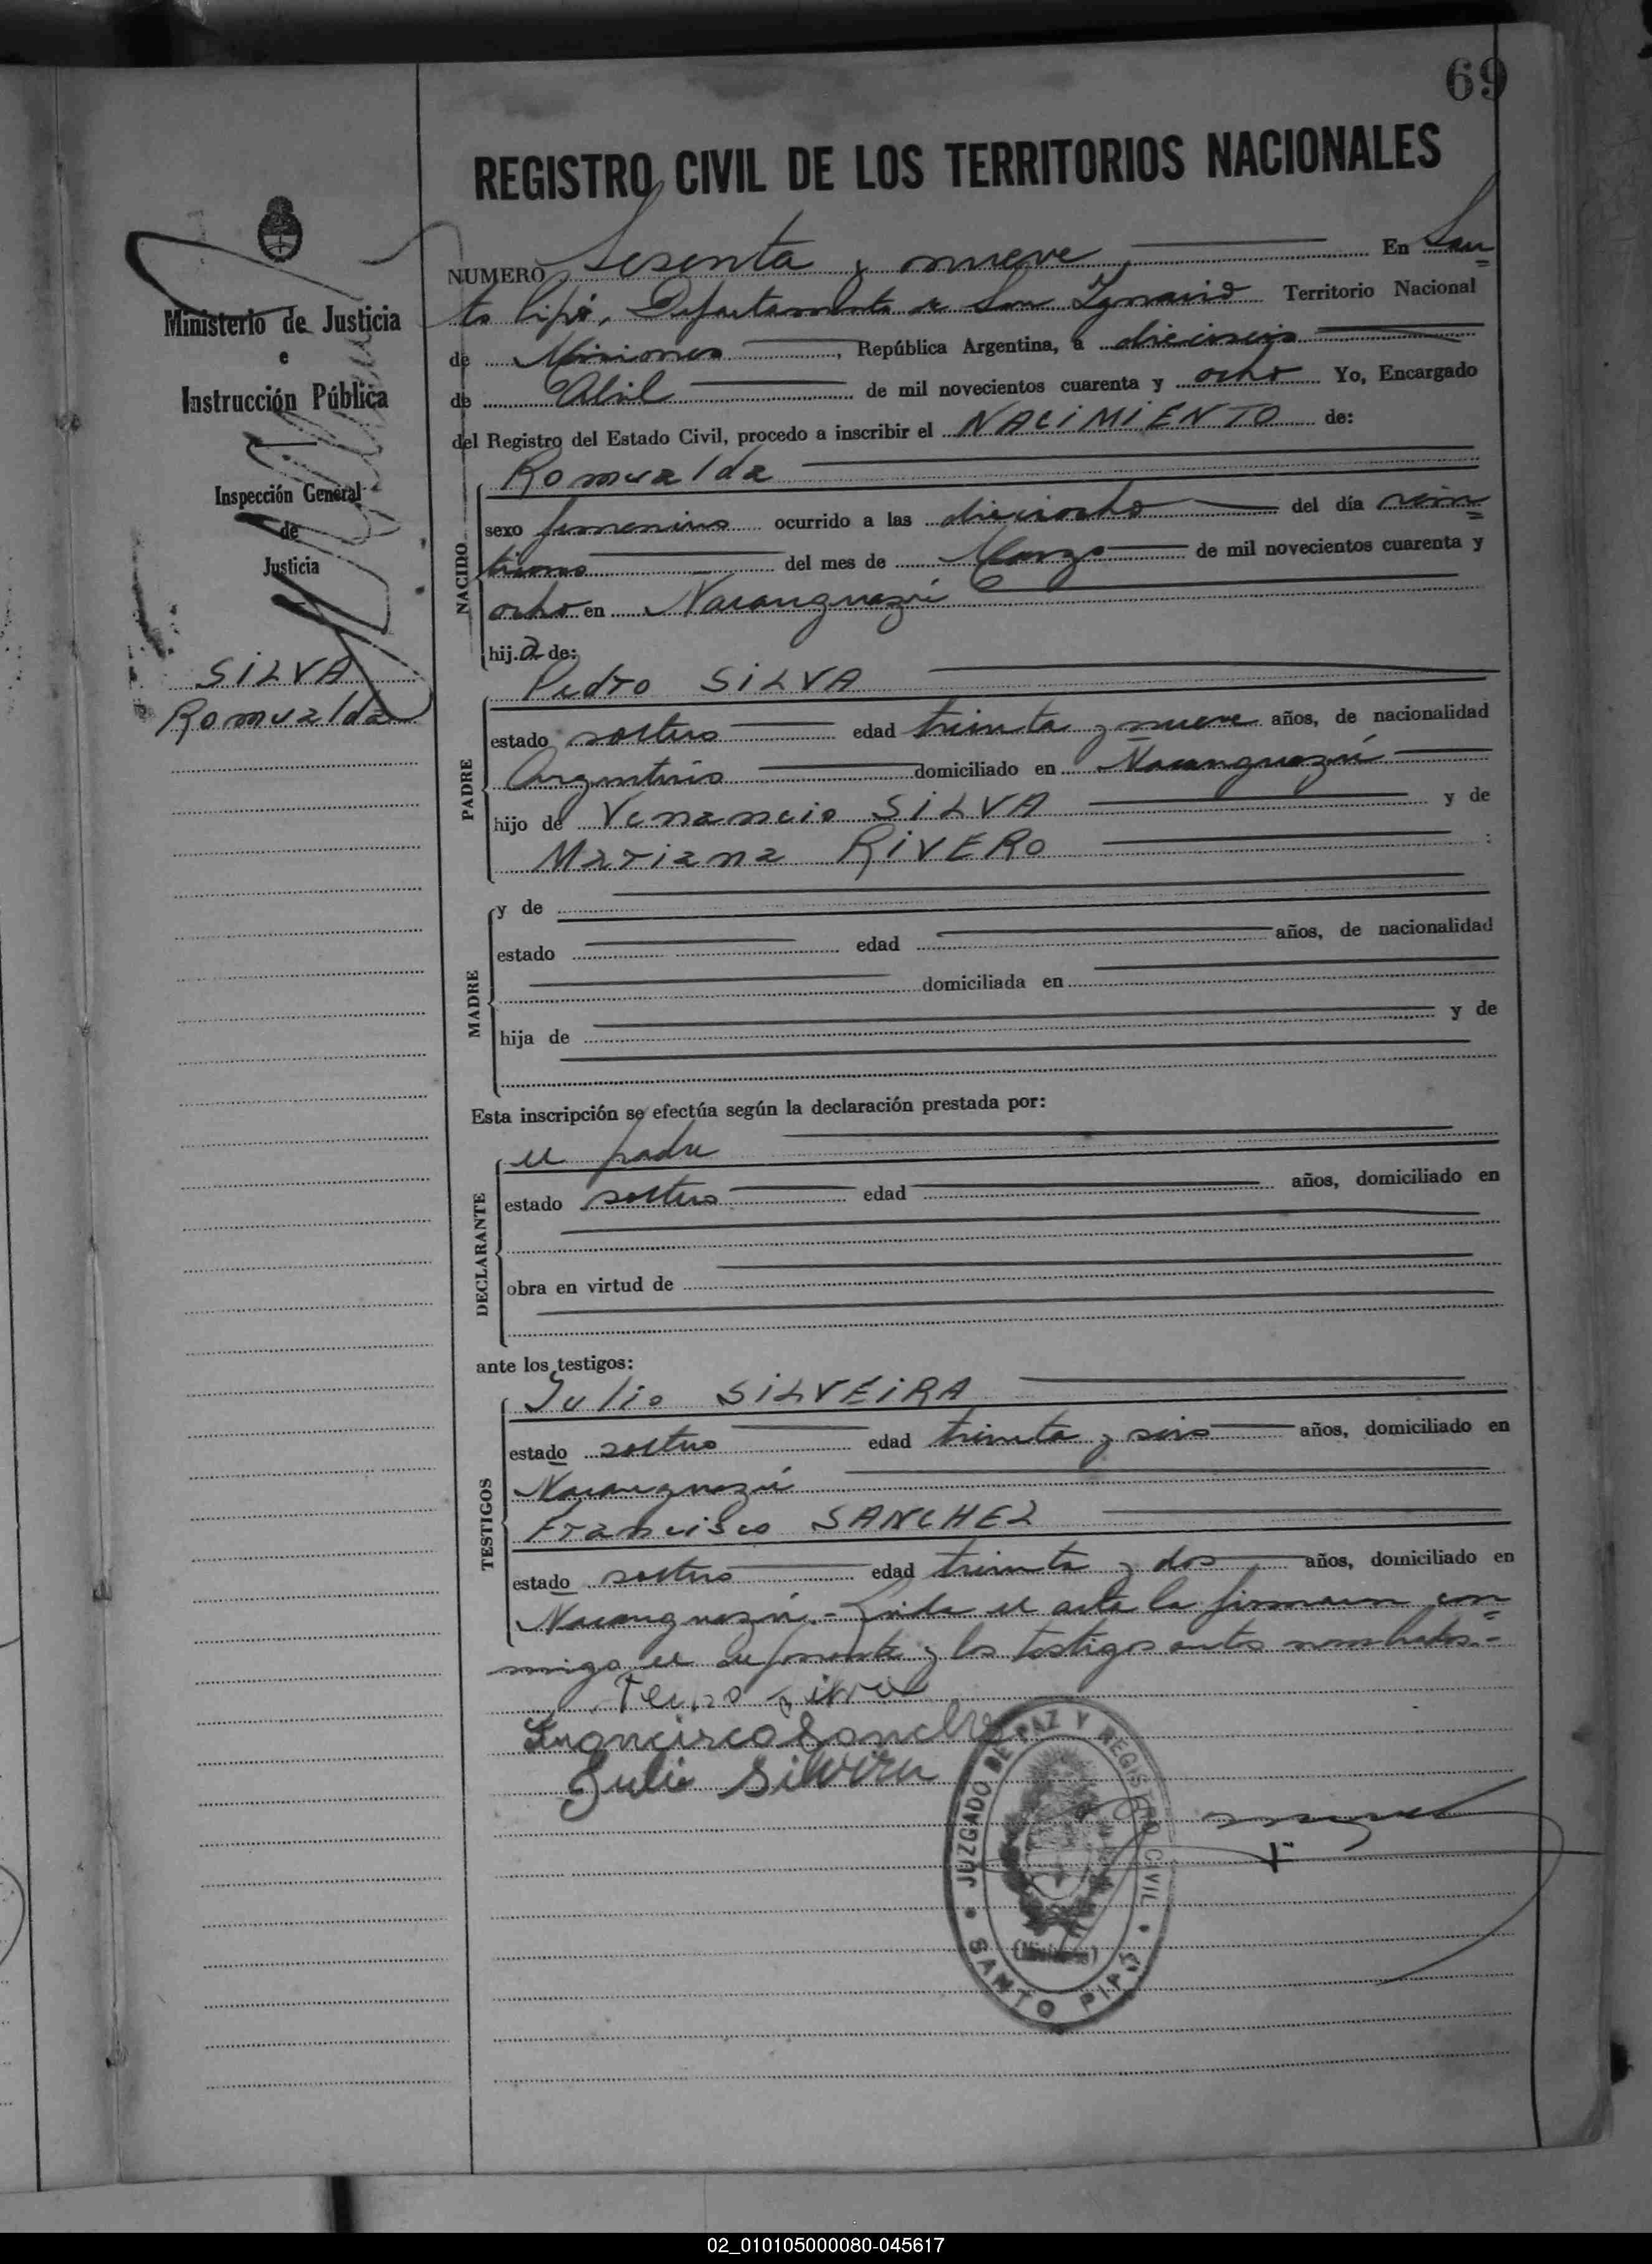 69
REGISTRO CIVIL DE LOS TERRITORIOS NACIONALES
Ministerio de Justicia
e
Instrucción Pública
Inspección General
de
Justicia
SILVA
Romualda
NUMERO Sesenta y nueve En San
to Pipó, Departamento de San Ignacio Territorio Nacional
de Misiones, República Argentina, a dieciseis
de Abril de mil novecientos cuarenta y ocho Yo, Encargado
del Registro del Estado Civil, procedo a inscribir el NACIMIENTO de:
NACIDO
Romualda
sexo femenino ocurrido a las dieciocho del día vein
tiuno del mes de Marzo de mil novecientos cuarenta y
ocho en Ñacanguazú
hija de:
PADRE
Pedro SILVA
estado soltero edad treinta y nueve años, de nacionalidad
Argentino domiciliado en Ñacanguazú
hijo de Venancio SILVA y de
Mariana RIVERO :
MADRE
y de
estado edad años, de nacionalidad
domiciliada en
hija de y de
Esta inscripción se efectúa según la declaración prestada por:
DECLARANTE
el padre
estado soltero edad años, domiciliado en
obra en virtud de
ante los testigos:
TESTIGOS
Julio SILVEIRA
estado soltero edad treinta y seis años, domiciliado en
Ñacanguazú
Francisco SANCHEZ
estado soltero edad treinta y dos años, domiciliado en
Ñacanguazú.- Leída el acta la firmaron con
migo el deponente y los testigos antes nombrados.-
Pedro Silva
Francisco Sanche
Julio Silveira
JUZGADO DE PAZ Y REGISTRO CIVIL
(Misiones)
SANTO PIPÓ
02_010105000080-045617